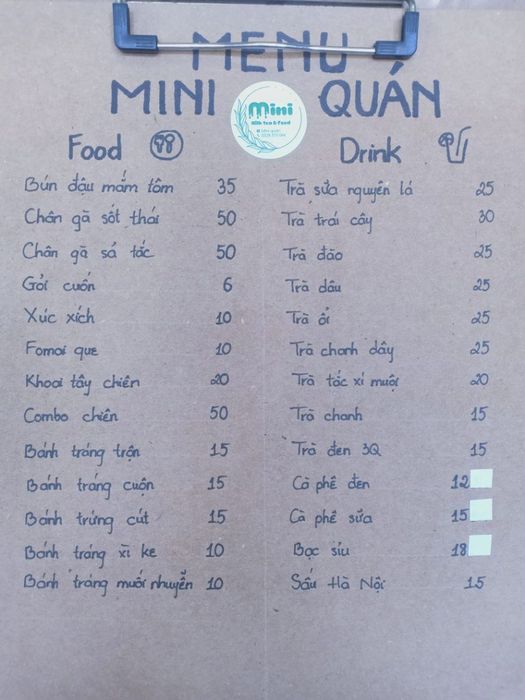 MENU
MINI QUÁN
mini
Milk tea & Food
Food
Bún đậu mắm tôm 35
Chân gà sốt thái 50
Chân gà sả tắc 50
Gỏi cuốn 6
Xúc xích 10
Fomai que 10
Khoai tây chiên 20
Combo chiên 50
Bánh tráng trộn 15
Bánh tráng cuộn 15
Bánh trứng cút 15
Bánh tráng xì ke 10
Bánh tráng muối nhuyễn 10
Drink
Trà sữa nguyên lá 25
Trà trái cây 30
Trà đào 25
Trà dâu 25
Trà ổi 25
Trà chanh dây 25
Trà tắc xí muội 20
Trà chanh 15
Trà đen 3Q 15
Cà phê đen 12
Cà phê sữa 15
Bạc sỉu 18
Sấu Hà Nội 15